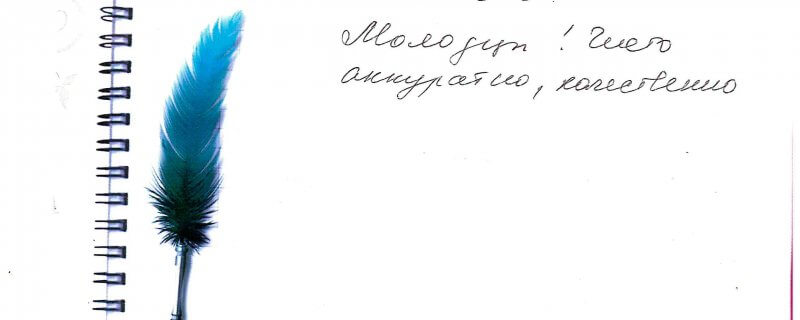 Молодцы! Чисто
аккуратно, качественно